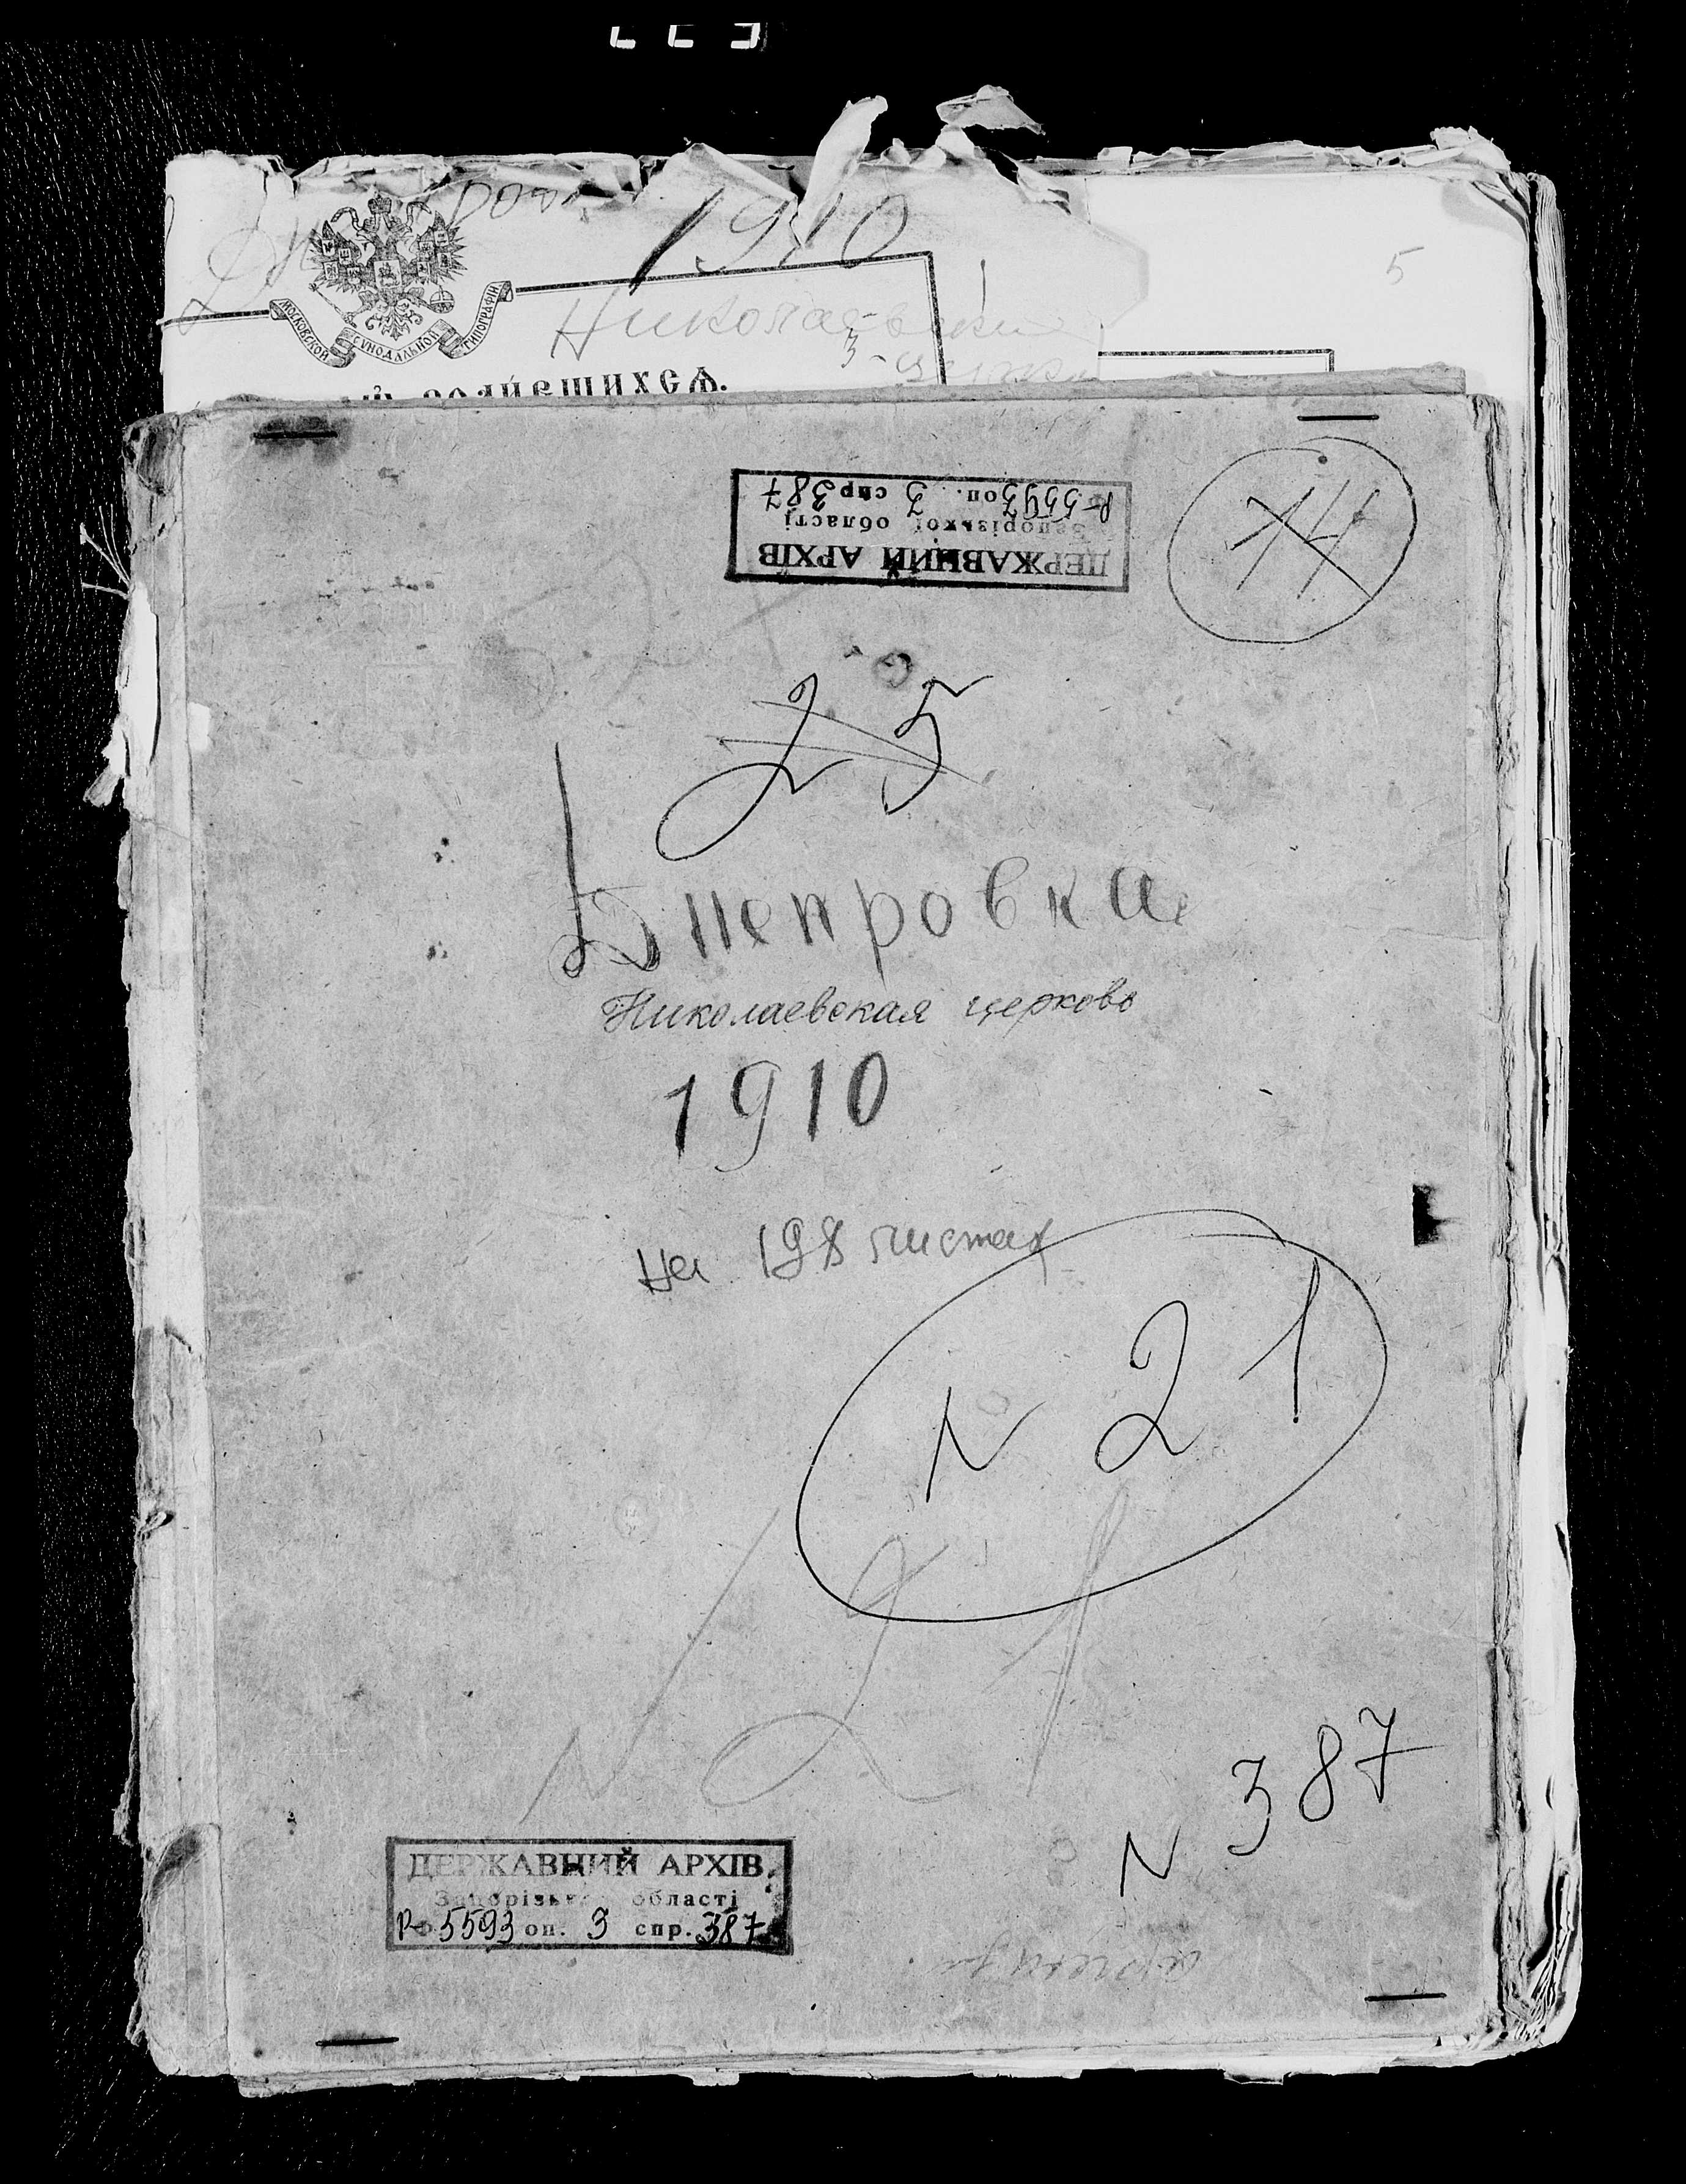 1910
5
МОСКОВСКОЙ СѴНОДАЛЬНОЙ ТИПОГРАФІИ
Николаевская
ДЕРЖАВНИЙ АРХІВ
Запорізької області
Р-5593 оп. 3 спр 387
14
25
Днепровка
Николаевская церковь
1910
на 198 листах
N 21
N 21
N 387
ДЕРЖАВНИЙ АРХІВ
Запорізької області
Р-5593 оп. 3 спр. 387